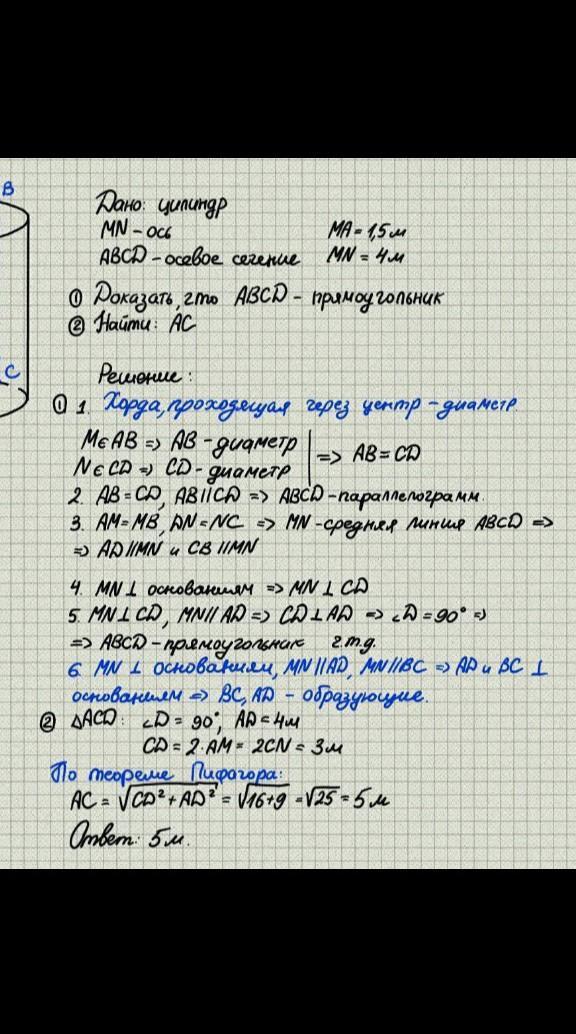 B
Дано: цилиндр
MN - ось MA = 1,5 м
ABCD - осевое сечение MN = 4 м
① Доказать, что ABCD - прямоугольник
② Найти: AC
C
Решение:
① 1. Хорда, проходящая через центр - диаметр.
M∈AB => AB - диаметр
N∈CD => CD - диаметр | => AB = CD
2. AB = CD, AB || CD => ABCD - параллелограмм.
3. AM = MB, DN = NC => MN - средняя линия ABCD =>
=> AD || MN и CB || MN
4. MN ⊥ основаниям => MN ⊥ CD
5. MN ⊥ CD, MN || AD => CD ⊥ AD => ∠D = 90° =>
=> ABCD - прямоугольник ч.т.д.
6. MN ⊥ основаниям, MN || AD, MN || BC => AD и BC ⊥
основаниям => BC, AD - образующие.
② △ACD: ∠D = 90°, AD = 4 м
CD = 2·AM = 2CN = 3 м
По теореме Пифагора:
AC = √(CD² + AD²) = √(16+9) = √25 = 5 м
Ответ: 5 м.